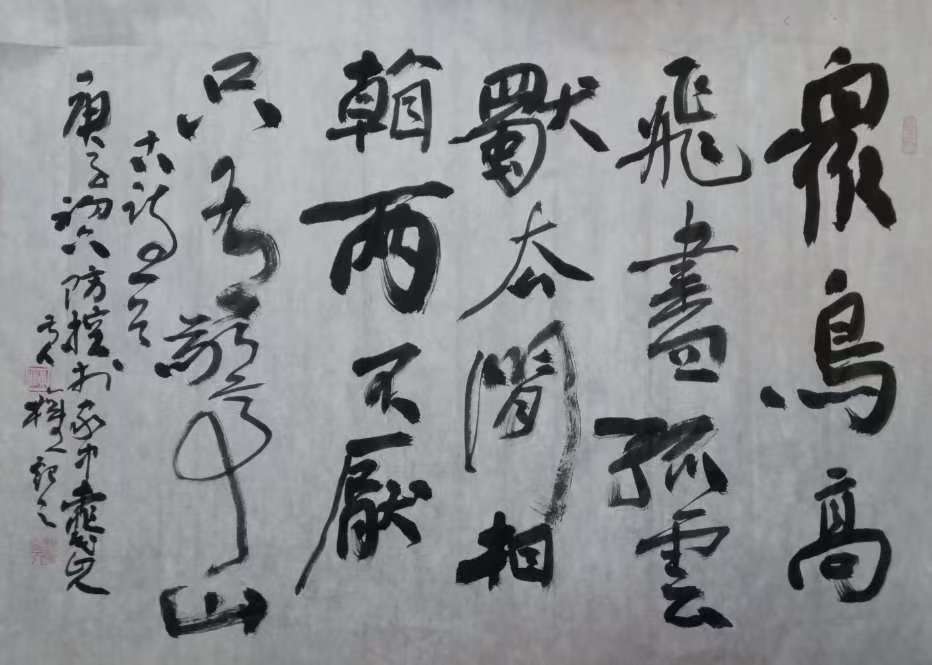 眾鳥高
飛盡孤雲
獨去閒相
看兩不厭
只有敬亭山
古詩一首
庚子初六防控於家中